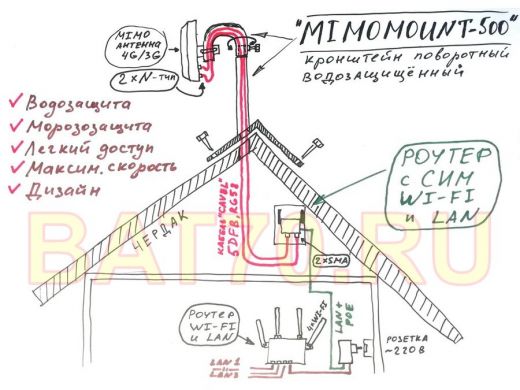 "MIMOMOUNT-500"
кронштейн поворотный
водозащищённый
MIMO
АНТЕННА
4G/3G
2×N-тип
✓ Водозащита
✓ Морозозащита
✓ Легкий доступ
✓ Максим. скорость
✓ Дизайн
РОУТЕР
с СИМ
WI-FI
и LAN
ЧЕРДАК
КАБЕЛ "CAVEL"
5DFB, RG58
2×SMA
BAT70.RU
РОУТЕР
WI-FI
и LAN
4×WI-FI
LAN+
POE
РОЗЕТКА
~220В
LAN1
LAN3